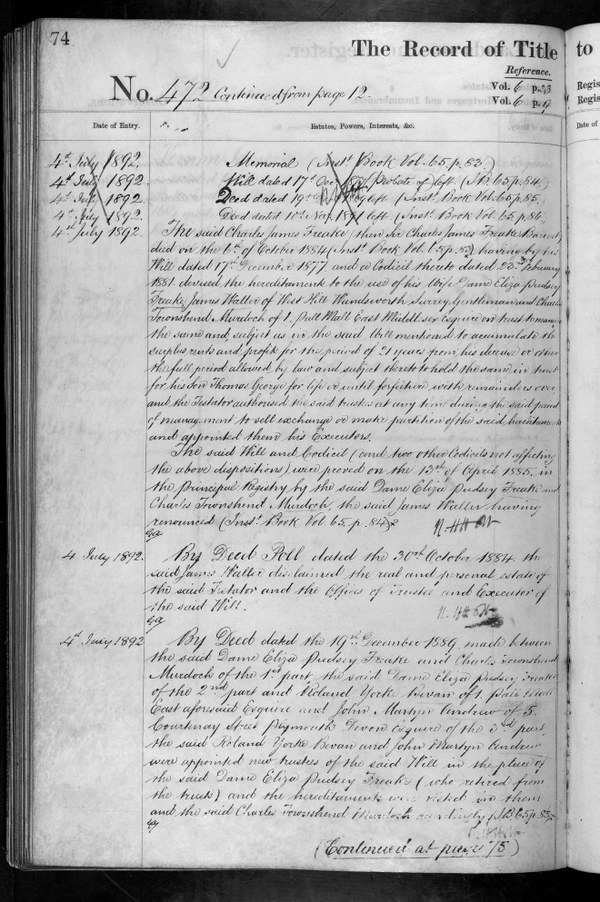 74
The Record of Title
to
Reference.
No. 472 Continued from page 12
Vol. 6 p. 33
Vol. 6 p. 9
Regis
Regis
Date of Entry.
Estates, Powers, Interests, &c.
Date of
4th July 1892. Memorial (Inst. Book Vol. 65 p. 83.)
4th July 1892 Will dated 17th Probate of left. (I.B. 65 p. 84.)
4th July 1892 Deed dated 19th left (Inst. Book Vol. 65 p. 85.
4th July 1892. Deed dated Nov. 1891 left (Inst. Book Vol. 65 p. 86.
4th July 1892 The said Charles James Freake, then Sir Charles James Freake Baronet,
died on the 6th of October 1884 (Inst. Book Vol. 65 p. ) having by his
Will dated 17th December 1877 and a Codicil thereto dated 23rd February
1881 devised the hereditaments to the use of his Wife Dame Eliza Pudsey
Freake, James Waller of West Hill Wandsworth Surrey Gentleman and Charles
Townshend Murdoch of 1, Pall Mall East Middlesex Esquire on trust to manage
the same and subject as in the said Will mentioned to accumulate the
surplus rents and profits for the period of 21 years from his decease or other
the full period allowed by law and subject thereto to hold the same in trust
for his Son Thomas George for life or until forfeiture, with remainders over
and the Testator authorised the said trustees at any time during the said period
of management to sell exchange or make partition of the said hereditaments
and appointed them his Executors.
The said Will and Codicil (and two other Codicils not affecting
the above dispositions) were proved on the 13th of April 1885, in
the Principal Registry by the said Dame Eliza Pudsey Freake and
Charles Townshend Murdoch, the said James Waller having
renounced (Inst. Book Vol. 65, p. 84)
4 July 1892. By Deed Poll dated the 30th October 1884 the
said James Waller disclaimed the real and personal estate of
the said Testator and the Offices of Trustee and Executor of
the said Will.
4th July 1892 By Deed dated the 19th December 1889, made between
the said Dame Eliza Pudsey Freake and Charles Townshend
Murdoch of the 1st part, the said Dame Eliza Pudsey Freake
of the 2nd part and Roland Yorke Bevan of 1 Pall Mall
East aforesaid Esquire and John Martyn Andrew of 5.
Courtenay Street Plymouth Devon Esquire of the 3rd part,
the said Roland Yorke Bevan and John Martyn Andrew
were appointed new trustees of the said Will in the place of
the said Dame Eliza Pudsey Freake (who retired from
the trusts) and the hereditaments were vested in them
and the said Charles Townshend Murdoch accordingly (I.B. 65 p. 85)
(Continued at page 75)